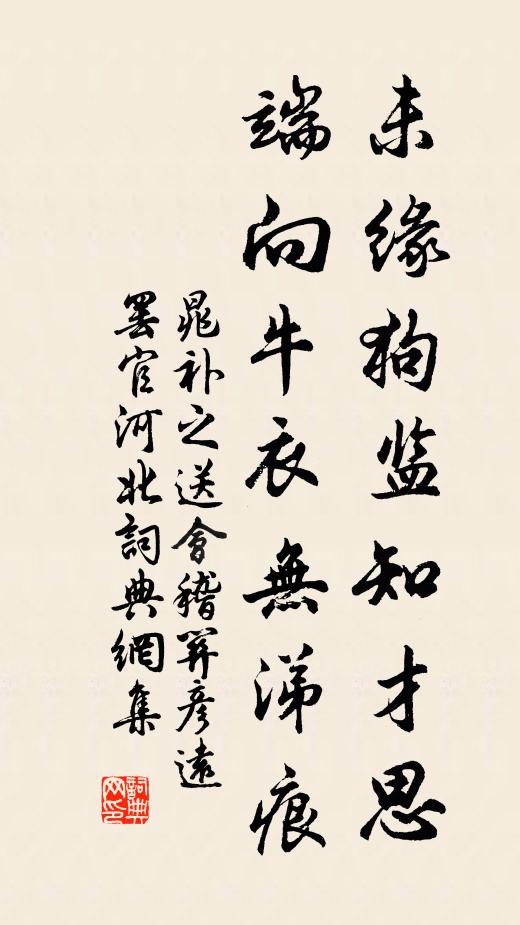 未缘狗监知才思
端向牛衣無涕痕
晁补之送會稽笄彦遠
罢官河北詞典網集
詞典网印